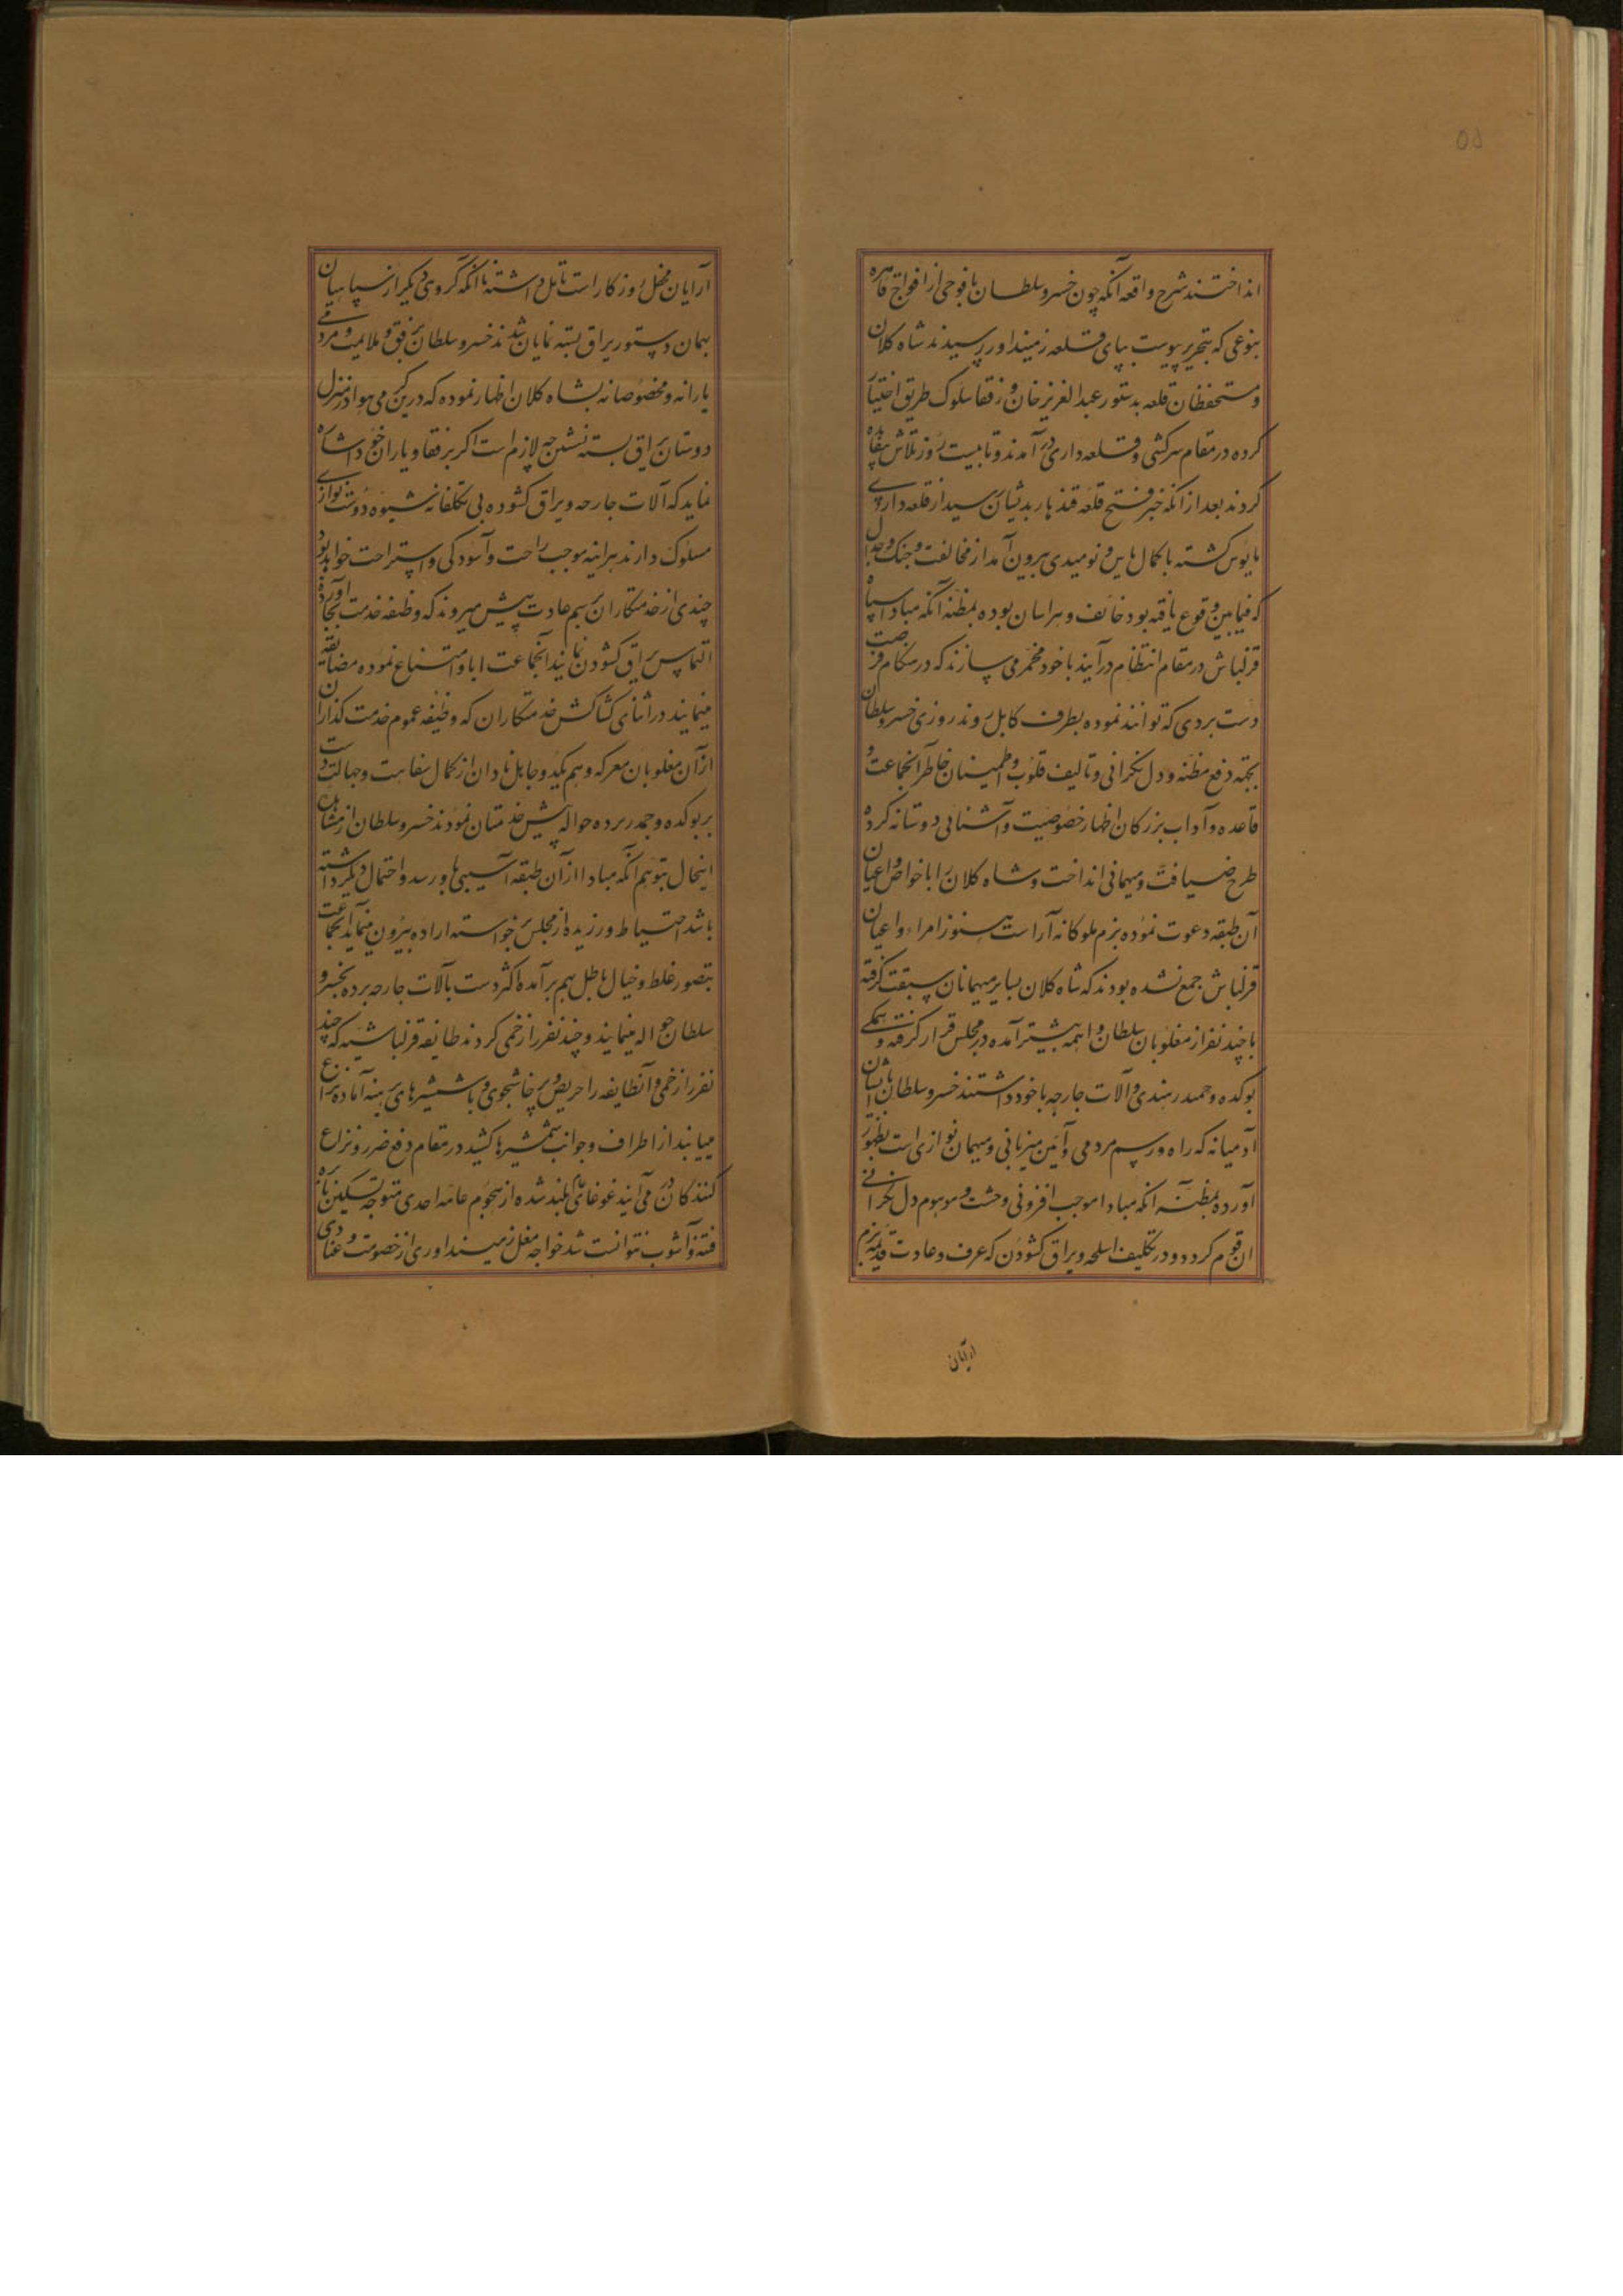 انداختند شرح واقعه آنکه چون خسرو سلطان با فوجی از افواج قاهره
بنوعی که بتحریر پیوست بپای قلعه زمینداور رسیدند شاه کلان
و مستحفظان قلعه بدستور عبدالعزیز خان و رفقا سلوک طریق اختیار
کرده در مقام سرکشی و قلعه داری در آمدند و تا بیست روز تلاش بیفایده
کردند بعد از آنکه خبر فتح قلعه قندهار بدیشان رسید از قلعه داری
مایوس کشته با کمال یاس و نومیدی بیرون آمد از مخالفت و جنک و جدل
که فیمابین وقوع یافته بود خائف و هراسان بوده بمظنه آنکه مبادا سپاه
قزلباش در مقام انتقام در آیند با خود مخمر می سازند که در هنکام فرصت
دست بردی که توانند نموده بطرف کابل روند روزی خسرو سلطان
بجهه دفع مظنه و دل نکرانی و تالیف قلوب و اطمینان خاطر آنجماعت و
قاعده و آداب بزرکان اظهار خصوصیت و آشنائی دوستانه کرده
طرح ضیافت و میهمانی انداخت و شاه کلان را با خواص و اعیان
آن طبقه دعوت نموده بزم ملوکانه آراست هنوز امراء و اعیان
قزلباش جمع نشده بودند که شاه کلان بسایر میهمانان سبقت کرفته
با چند نفر از مغلوبان سلطان واهمه پیشتر آمده در مجلس قرار کرفته و همکی
بوکده و جمدر هندی و آلات جارحه با خود داشتند خسرو سلطان با ایشان
آدمیانه که راه و رسم مردمی و آئین میزبانی و میهمان نوازی است بظهور
آورده بمظنه آنکه مبادا موجب افزونی وحشت و موهوم دل نکرانی
آن قوم کردد و در تکلیف اسلحه و یراق کشودن که عرف و عادت قدیمه بزم
آرایان
آرایان محفل روزکار است تامل داشته تا آنکه کروی دیکر از سپاهیان
بهمان دستور یراق بسته نمایان شدند خسرو سلطان برفق و ملایمت و مردمی
یارانه و مخصوصانه بشاه کلان اظهار نموده که درین کرمی هوا در منزل
دوستان یراق بسته نشستن چه لازم است اکر برفقا و یاران خود اشاره
نماید که آلات جارحه و یراق کشوده بی تکلفانه شیوه دوست نوازی
مسلوک دارند هراینه موجب راحت و آسودکی و استراحت خواهد بود
چندی از خدمتکاران برسم عادت پیش میروند که وظیفه خدمت بجا آورده
التماس یراق کشودن نمایند آنجماعت ابا و امتناع نموده مضایقه
مینمایند در اثنای کشاکش خدمتکاران که وظیفه عموم خدمت کذاران
از آن مغلوبان معرکه وهم یکدو جاهل نادان از کمال سفاهت و جهالت دست
بر بوکده و جمدر برده حواله پیش خدمتان نمودند خسرو سلطان از مشاهده
اینحال بتوهم آنکه مبادا از آن طبقه آسیبی باو رسد و احتمال دیکر داشته
باشد احتیاط ورزیده از مجلس برخواسته اراده بیرون مینماید آنجماعت
بتصور غلط و خیال باطل بهم برآمده اکثر دست بآلات جارحه برده بخسرو
سلطان حواله مینمایند و چند نفر را زخمی کردند طایفه قزلباشیه که چند
نفر را زخمی و آنطایفه را حریص و پرخاشجوی و با شمشیرهای برهنه آماده نزاع
مییابند از اطراف و جوانب شمشیرها کشید در مقام دفع ضرر و نزاع
کنندکان در می آیند غوغای بلند شده از هجوم عامه احدی متوجه تسکین نایره
فتنه و آشوب نتوانست شد خواجه مغل زمینداوری از خصومت و عنادی